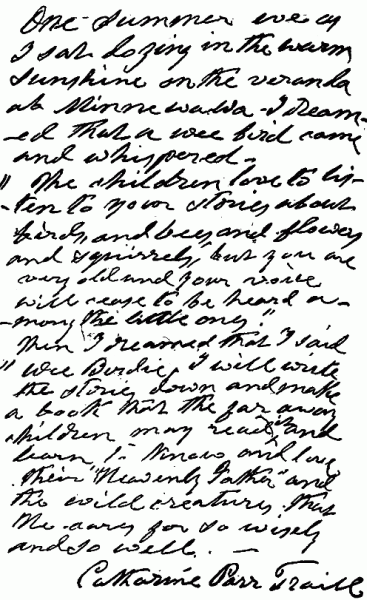 One summer eve as
I sat dozing in the warm
sunshine on the veranda
at Minnewawa - I dream-
-ed that a wee bird came
and whispered -
"The children love to lis-
-ten to your stories about
birds, and bees, and flowers
and squirrels, but you are
very old and your voice
will cease to be heard a-
-mong the little ones"
Then I dreamed that I said
"Wee Birdie, I will write
the stories down and make
a book that the far away
children may read it, and
learn to know and love
their "Heavenly Father" and
the wild creatures that
He cares for so wisely
and so well. —
Catharine Parr Traill